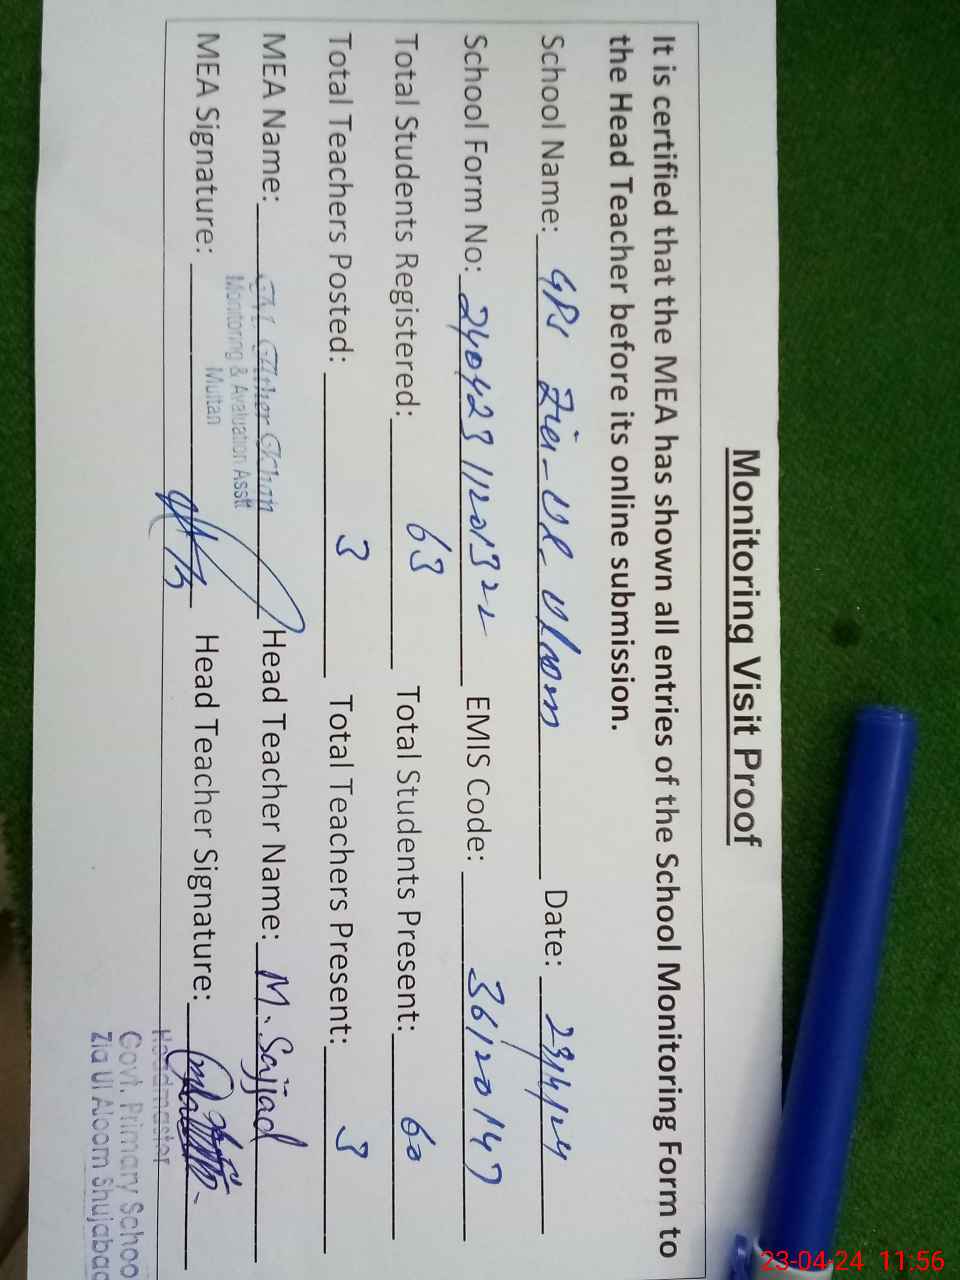 Monitoring Visit Proof
It is certified that the MEA has shown all entries of the School Monitoring Form to
the Head Teacher before its online submission.
School Name: GPS Zia-Ul-Uloom Date: 23/4/24
School Form No: 24042311201322 EMIS Code: 36120147
Total Students Registered: 63 Total Students Present: 60
Total Teachers Posted: 3 Total Teachers Present: 3
MEA Name: Khan Head Teacher Name: M. Sajjad
Monitoring & Avaluation Asstt
Multan
MEA Signature: Head Teacher Signature:
Headmaster
Govt. Primary Schoo
Zia Ul Aloom Shujabad
23-04-24 11:56